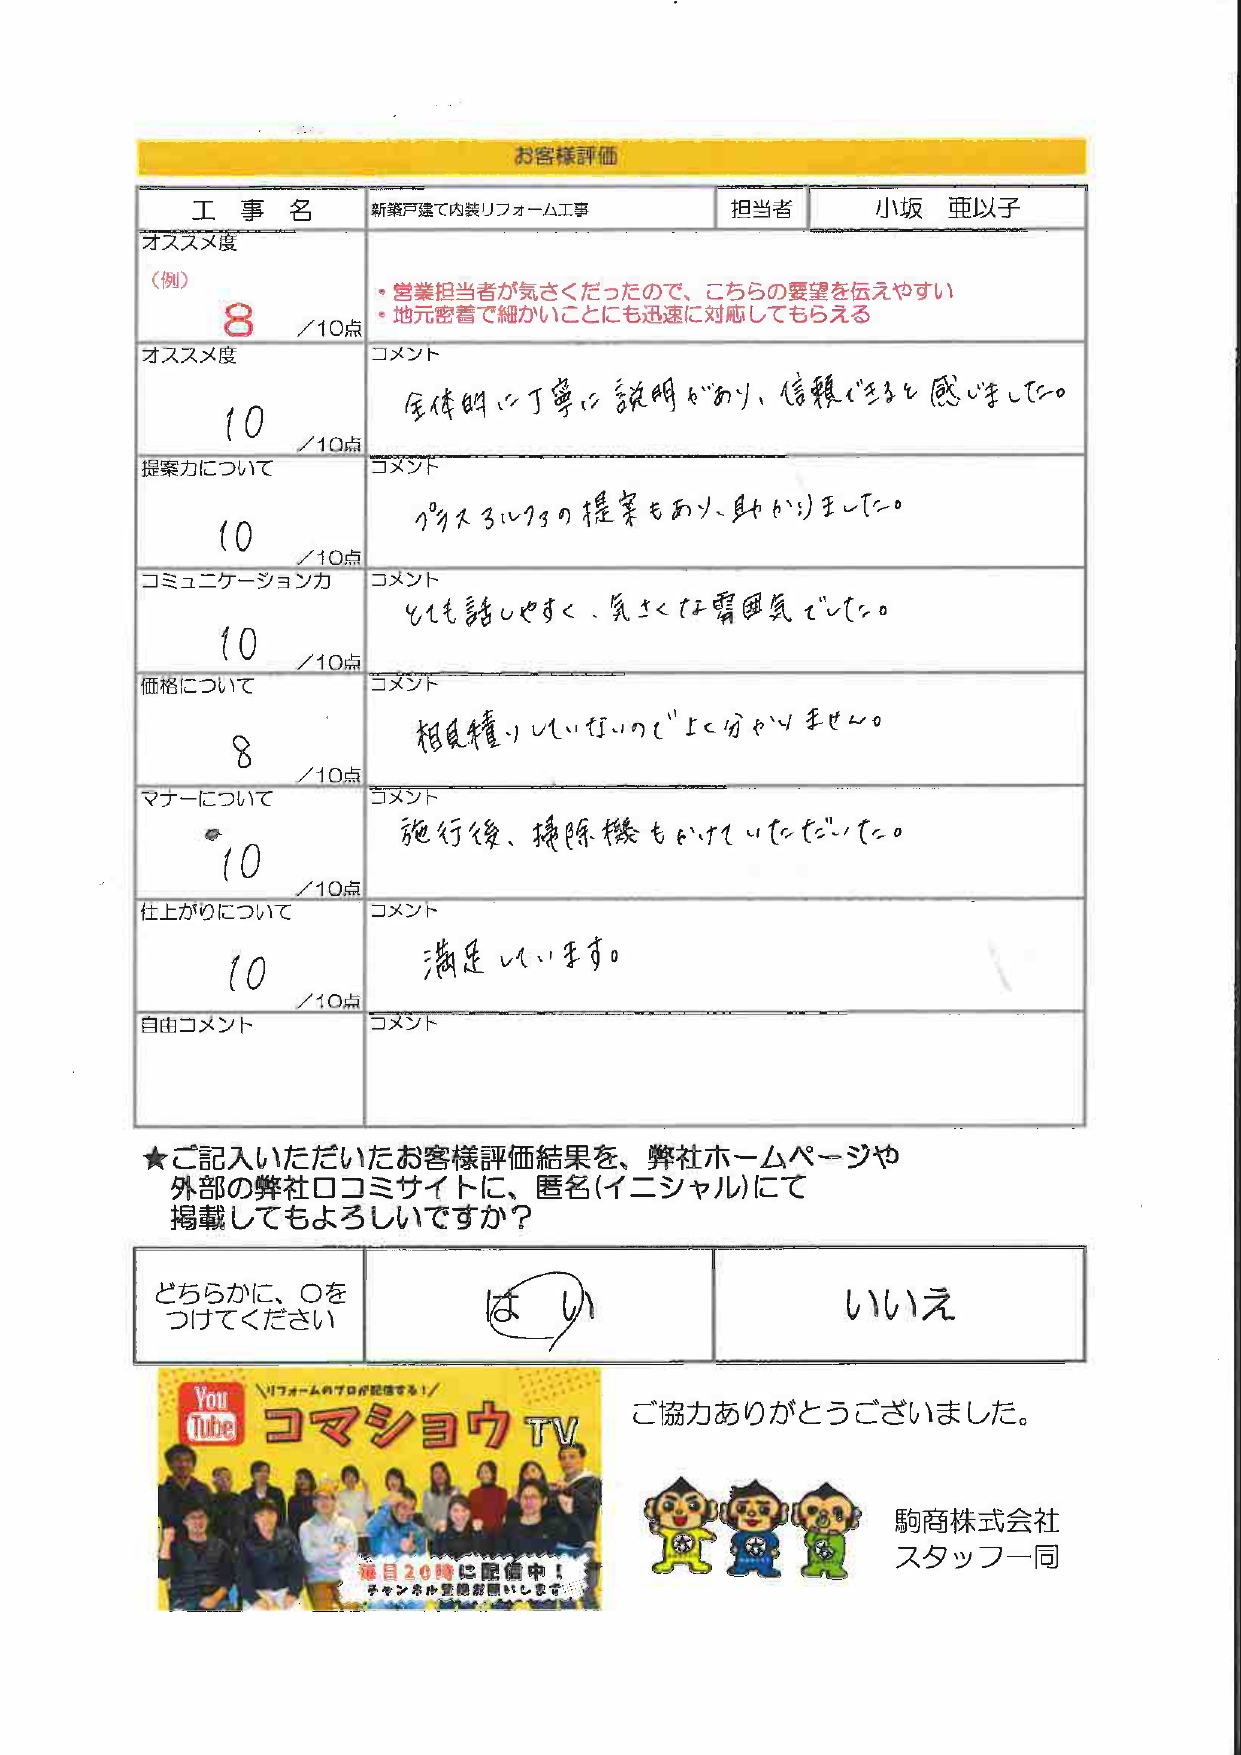 お客様評価
工 事 名 新築戸建て内装リフォーム工事 担当者 小坂 亜以子
オススメ度
（例）
8 ／10点
・営業担当者が気さくだったので、こちらの要望を伝えやすい
・地元密着で細かいことにも迅速に対応してもらえる
オススメ度 コメント
10 ／10点
全体的に丁寧に説明があり、信頼できると感じました。
提案力について コメント
10 ／10点
プラスアルファの提案もあり、助かりました。
コミュニケーション力 コメント
10 ／10点
とても話しやすく、気さくな雰囲気でした。
価格について コメント
8 ／10点
相見積りしていないのでよく分かりません。
マナーについて コメント
10 ／10点
施行後、掃除機もかけていただいた。
仕上がりについて コメント
10 ／10点
満足しています。
自由コメント コメント
★ご記入いただいたお客様評価結果を、弊社ホームページや
外部の弊社口コミサイトに、匿名(イニシャル)にて
掲載してもよろしいですか？
どちらかに、〇を
つけてください
はい いいえ
You
Tube
＼リフォームのプロが配信する！／
コマショウTV
毎日20時に配信中！
チャンネル登録お願いします
ご協力ありがとうございました。
駒商株式会社
スタッフ一同